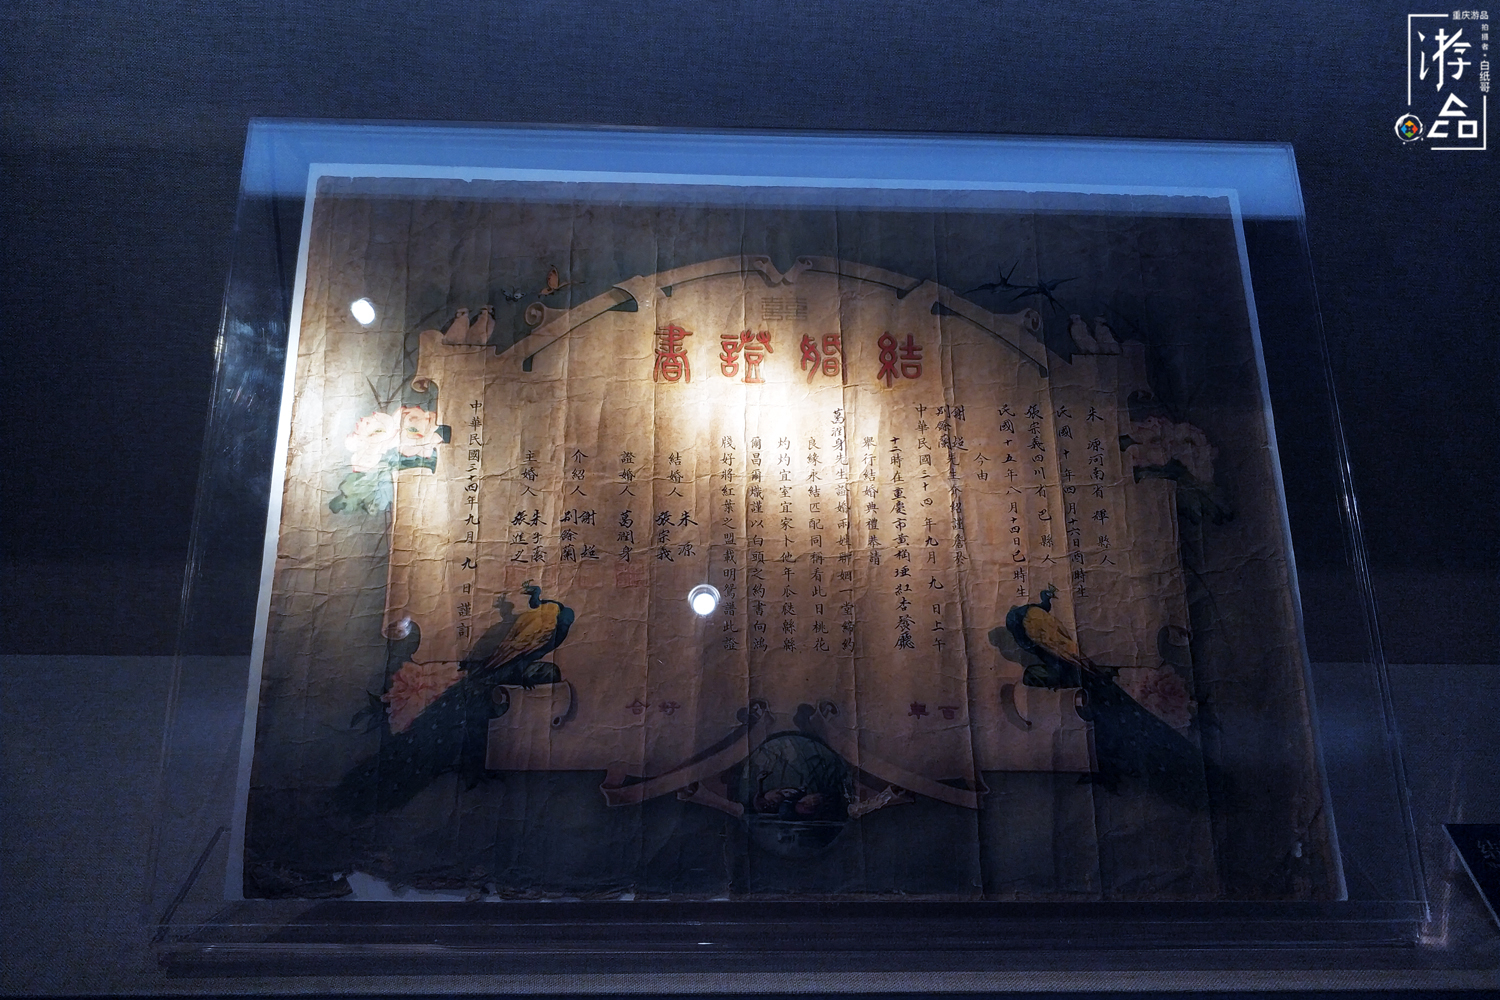 囍
結婚證書
朱源河南省禪縣人
民國十年四月十六日酉時生
張宗義四川省巴縣人
民國十五年八月十四日巳時生
今由
謝超
別餘蘭先生介紹謹詹於
中華民國三十四年九月九日上午
十二時在重慶市黃桷埡紅杏餐廳
舉行結婚典禮恭請
萬潤身先生證婚兩姓聯姻一堂締約
良緣永結匹配同稱看此日桃花
灼灼宜室宜家卜他年瓜瓞綿綿
爾昌爾熾謹以白頭之約書向鴻
牋好將紅葉之盟載明鴛譜此證
結婚人 朱源
張宗義
證婚人 萬潤身
介紹人 謝超
別餘蘭
主婚人
張進之
中華民國三十四年九月九日謹訂
百年好合
重庆游品
游品
拍摄者·白纸哥